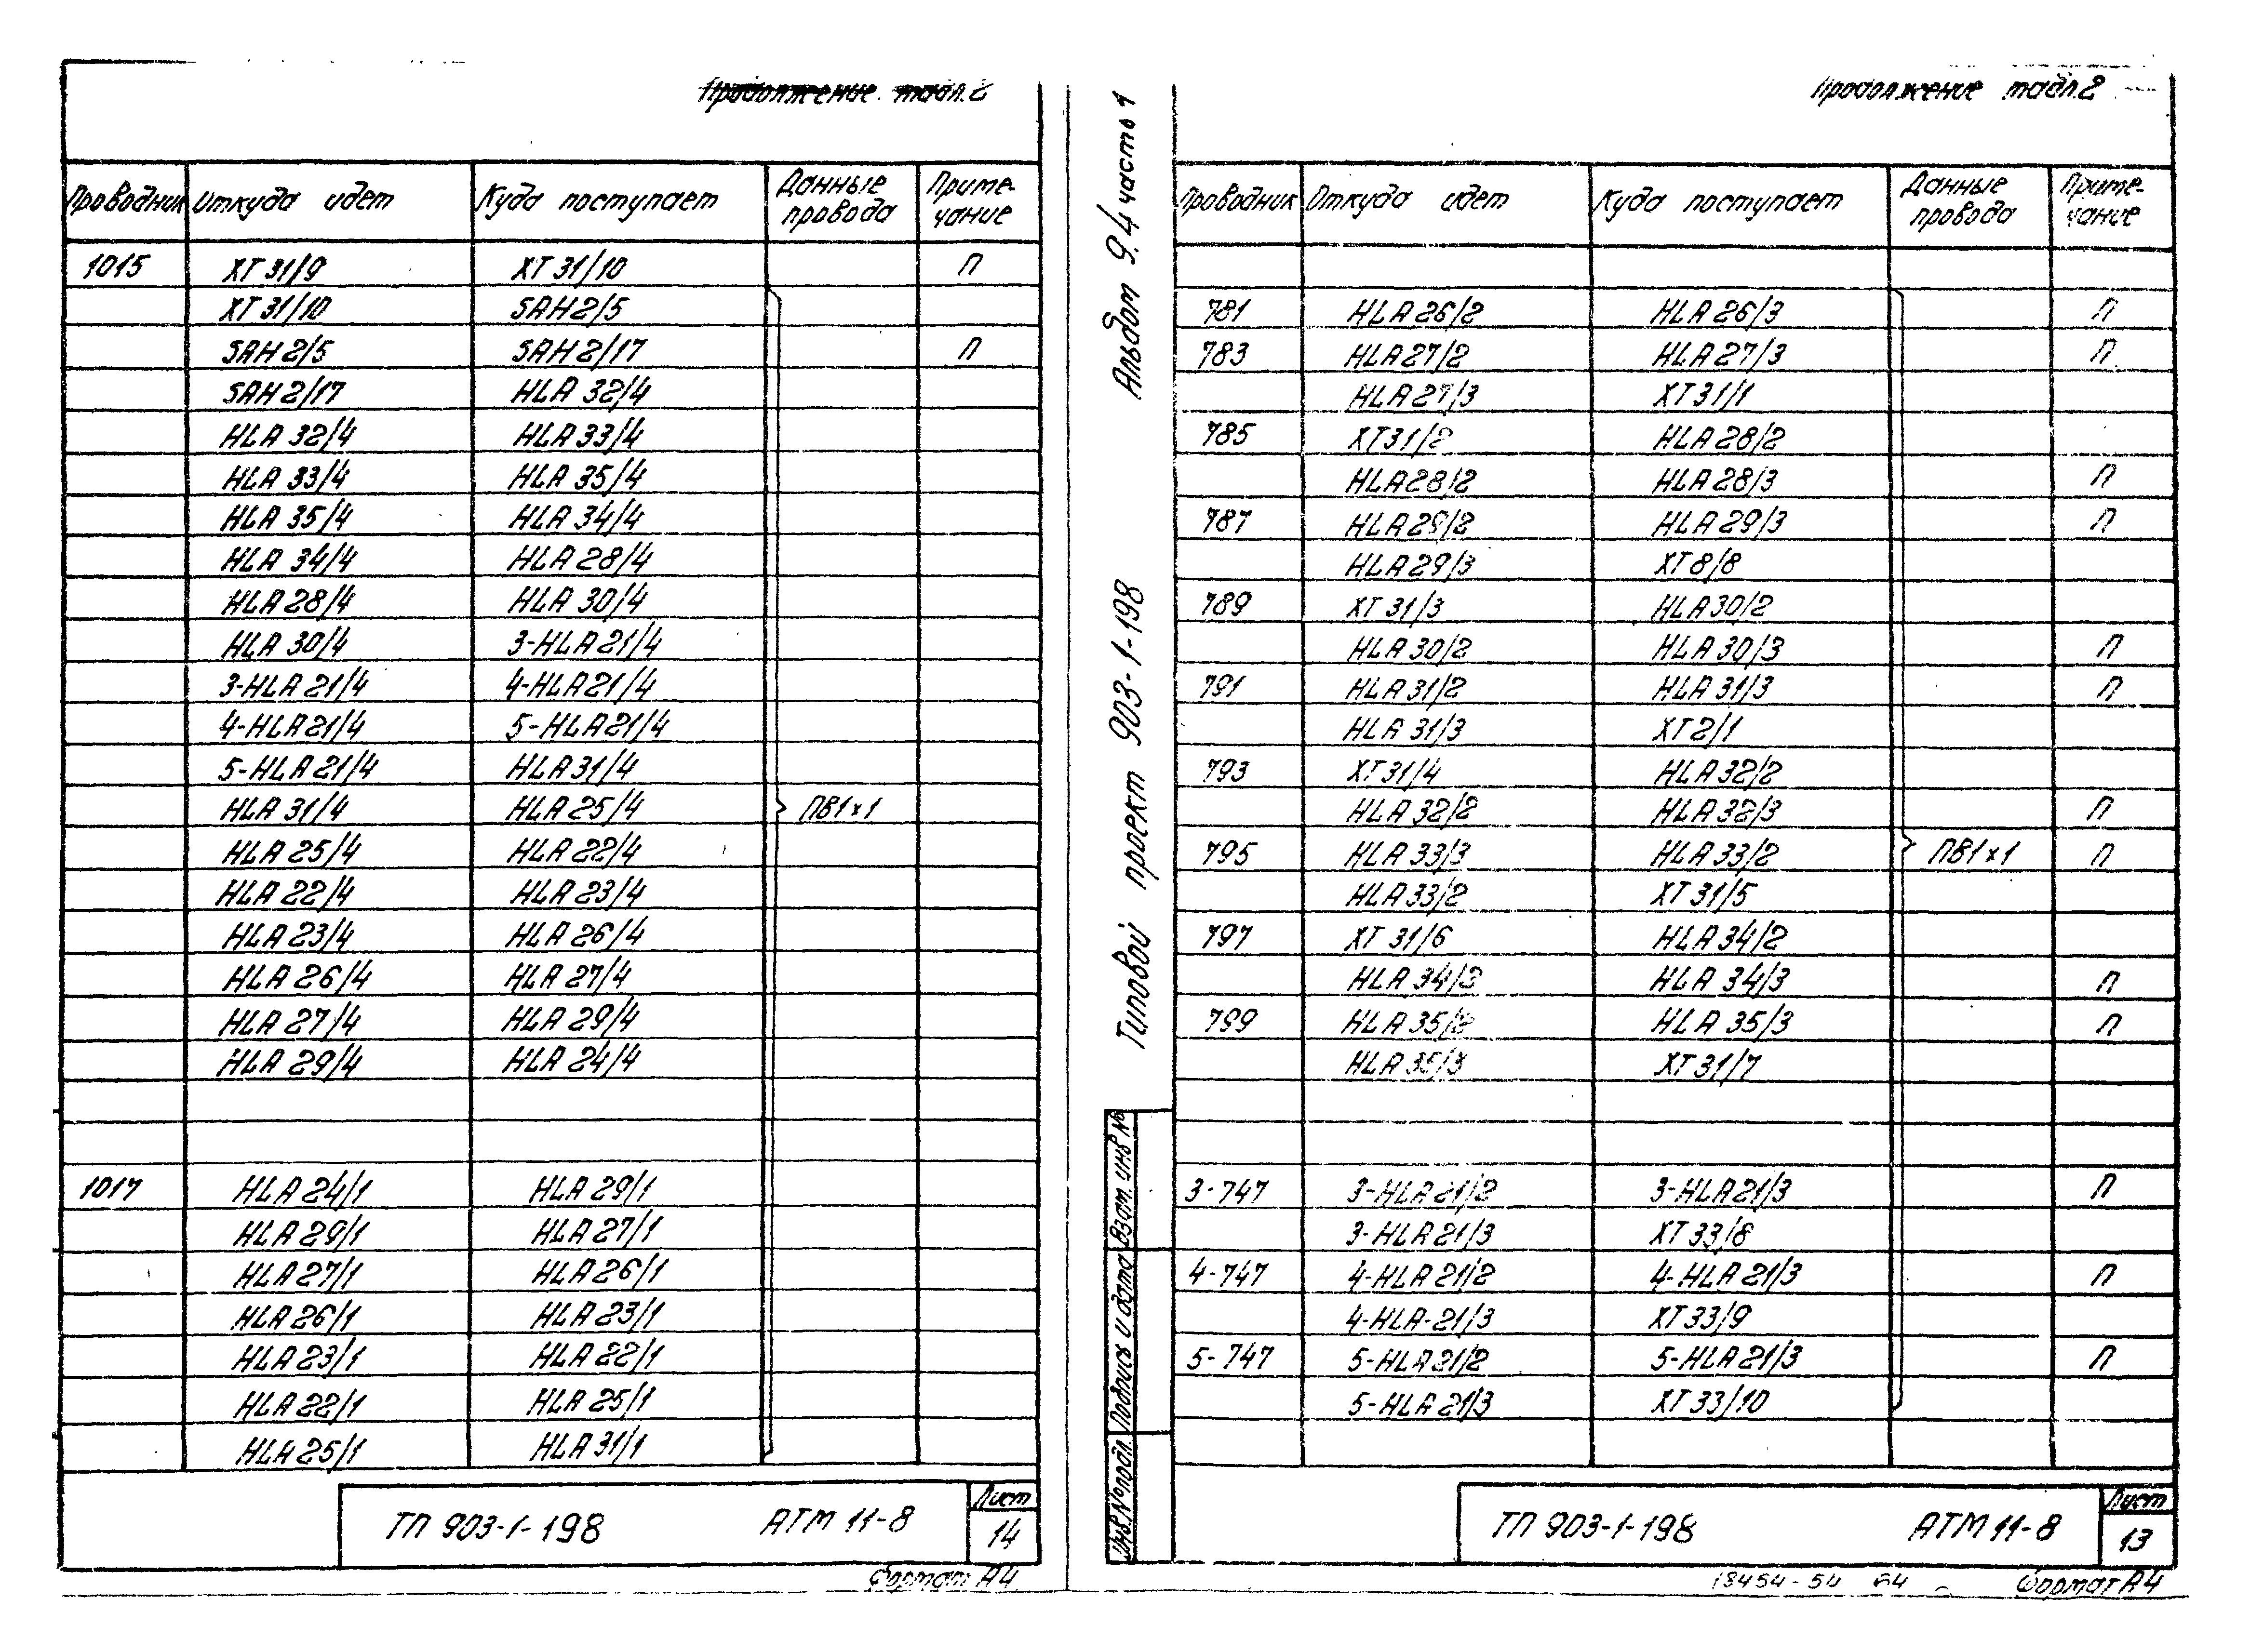 Продолжение табл.2
Проводник Откуда идет Куда поступает Данные провода Приме-чание
1015 XT31/9 XT31/10 П
XT31/10 SAH2/5
SAH2/5 SAH2/17 П
SAH2/17 HLA32/4
HLA32/4 HLA33/4
HLA33/4 HLA35/4
HLA35/4 HLA34/4
HLA34/4 HLA28/4
HLA28/4 HLA30/4
HLA30/4 3-HLA21/4
3-HLA21/4 4-HLA21/4
4-HLA21/4 5-HLA21/4
5-HLA21/4 HLA31/4
HLA31/4 HLA25/4 ПВ1×1
HLA25/4 HLA22/4
HLA22/4 HLA23/4
HLA23/4 HLA26/4
HLA26/4 HLA27/4
HLA27/4 HLA29/4
HLA29/4 HLA24/4
1017 HLA24/1 HLA29/1
HLA29/1 HLA27/1
HLA27/1 HLA26/1
HLA26/1 HLA23/1
HLA23/1 HLA22/1
HLA22/1 HLA25/1
HLA25/1 HLA31/1
ТП 903-1-198 АТМ 11-8 Лист 14
Формат А4
Альбом 9.4 часть 1
Типовой проект 903-1-198
Взам. инв №
Подпись и дата
Инв.№подл.
Продолжение табл.2
Проводник Откуда идет Куда поступает Данные провода Приме-чание
781 HLA26/2 HLA26/3 П
783 HLA27/2 HLA27/3 П
HLA27/3 XT31/1
785 XT31/2 HLA28/2
HLA28/2 HLA28/3 П
787 HLA29/2 HLA29/3 П
HLA29/3 XT8/8
789 XT31/3 HLA30/2
HLA30/2 HLA30/3 П
791 HLA31/2 HLA31/3 П
HLA31/3 XT2/1
793 XT31/4 HLA32/2
HLA32/2 HLA32/3 П
795 HLA33/3 HLA33/2 ПВ1×1 П
HLA33/2 XT31/5
797 XT31/6 HLA34/2
HLA34/2 HLA34/3 П
799 HLA35/2 HLA35/3 П
HLA35/3 XT31/7
3-747 3-HLA21/2 3-HLA21/3 П
3-HLA21/3 XT33/8
4-747 4-HLA21/2 4-HLA21/3 П
4-HLA-21/3 XT33/9
5-747 5-HLA21/2 5-HLA21/3 П
5-HLA21/3 XT33/10
ТП 903-1-198 АТМ 11-8 Лист 13
18454-54 64 Формат А4